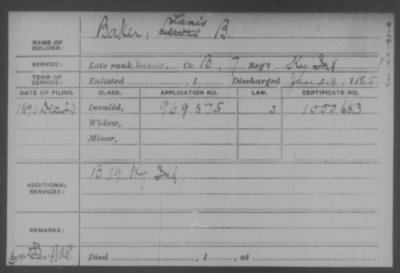 Lanis
NAME OF SOLDIER: Baker, B.
SERVICE: Late rank, Co. B, 7 Reg't Ky Inf
TERM OF SERVICE: Enlisted , 1 Discharged 23, 1865
DATE OF FILING. CLASS. APPLICATION NO. LAW. CERTIFICATE NO.
1890 Dec 20 Invalid, 949375 J
Widow,
Minor,
ADDITIONAL SERVICES: B 19 Ky Inf
REMARKS:
Died , 1 , at